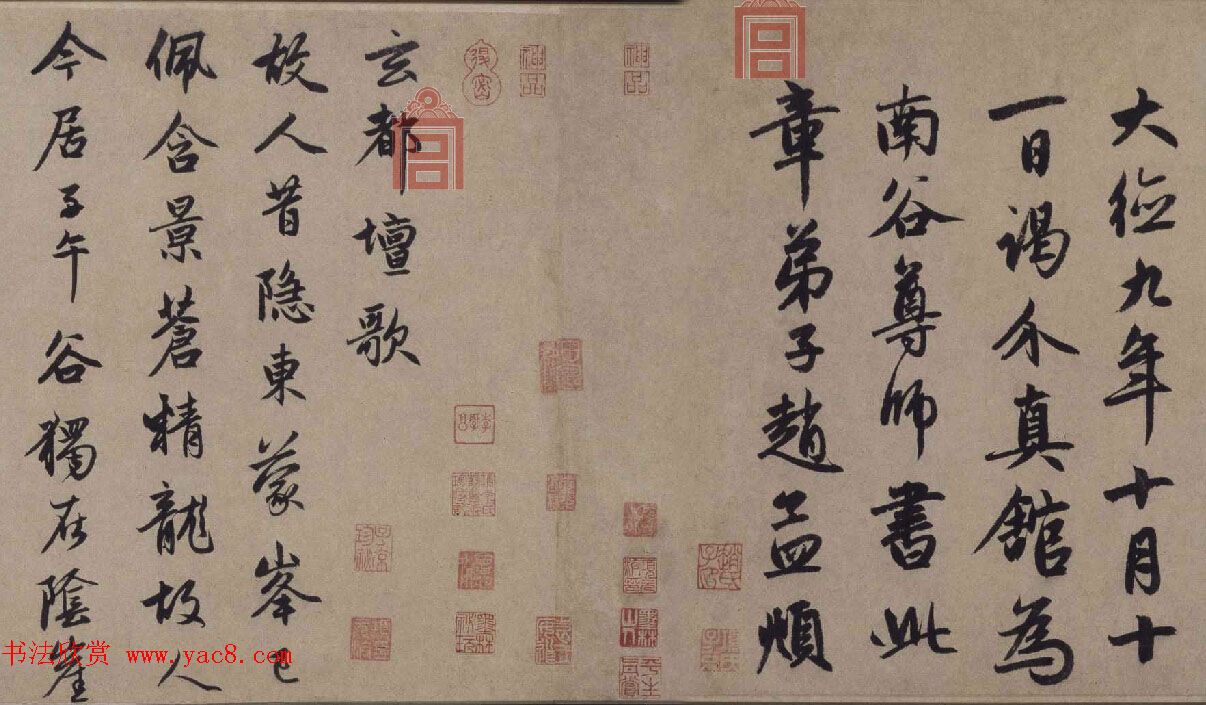 大德九年十月十
一日謁介真館為
南谷尊師書此
章弟子趙孟頫
神品
神品
趙氏子昂
玄都壇歌
故人昔隐東蒙峯已
佩含景蒼精龍故人
今居子午谷獨在陰崖
书法欣赏 www.yac8.com